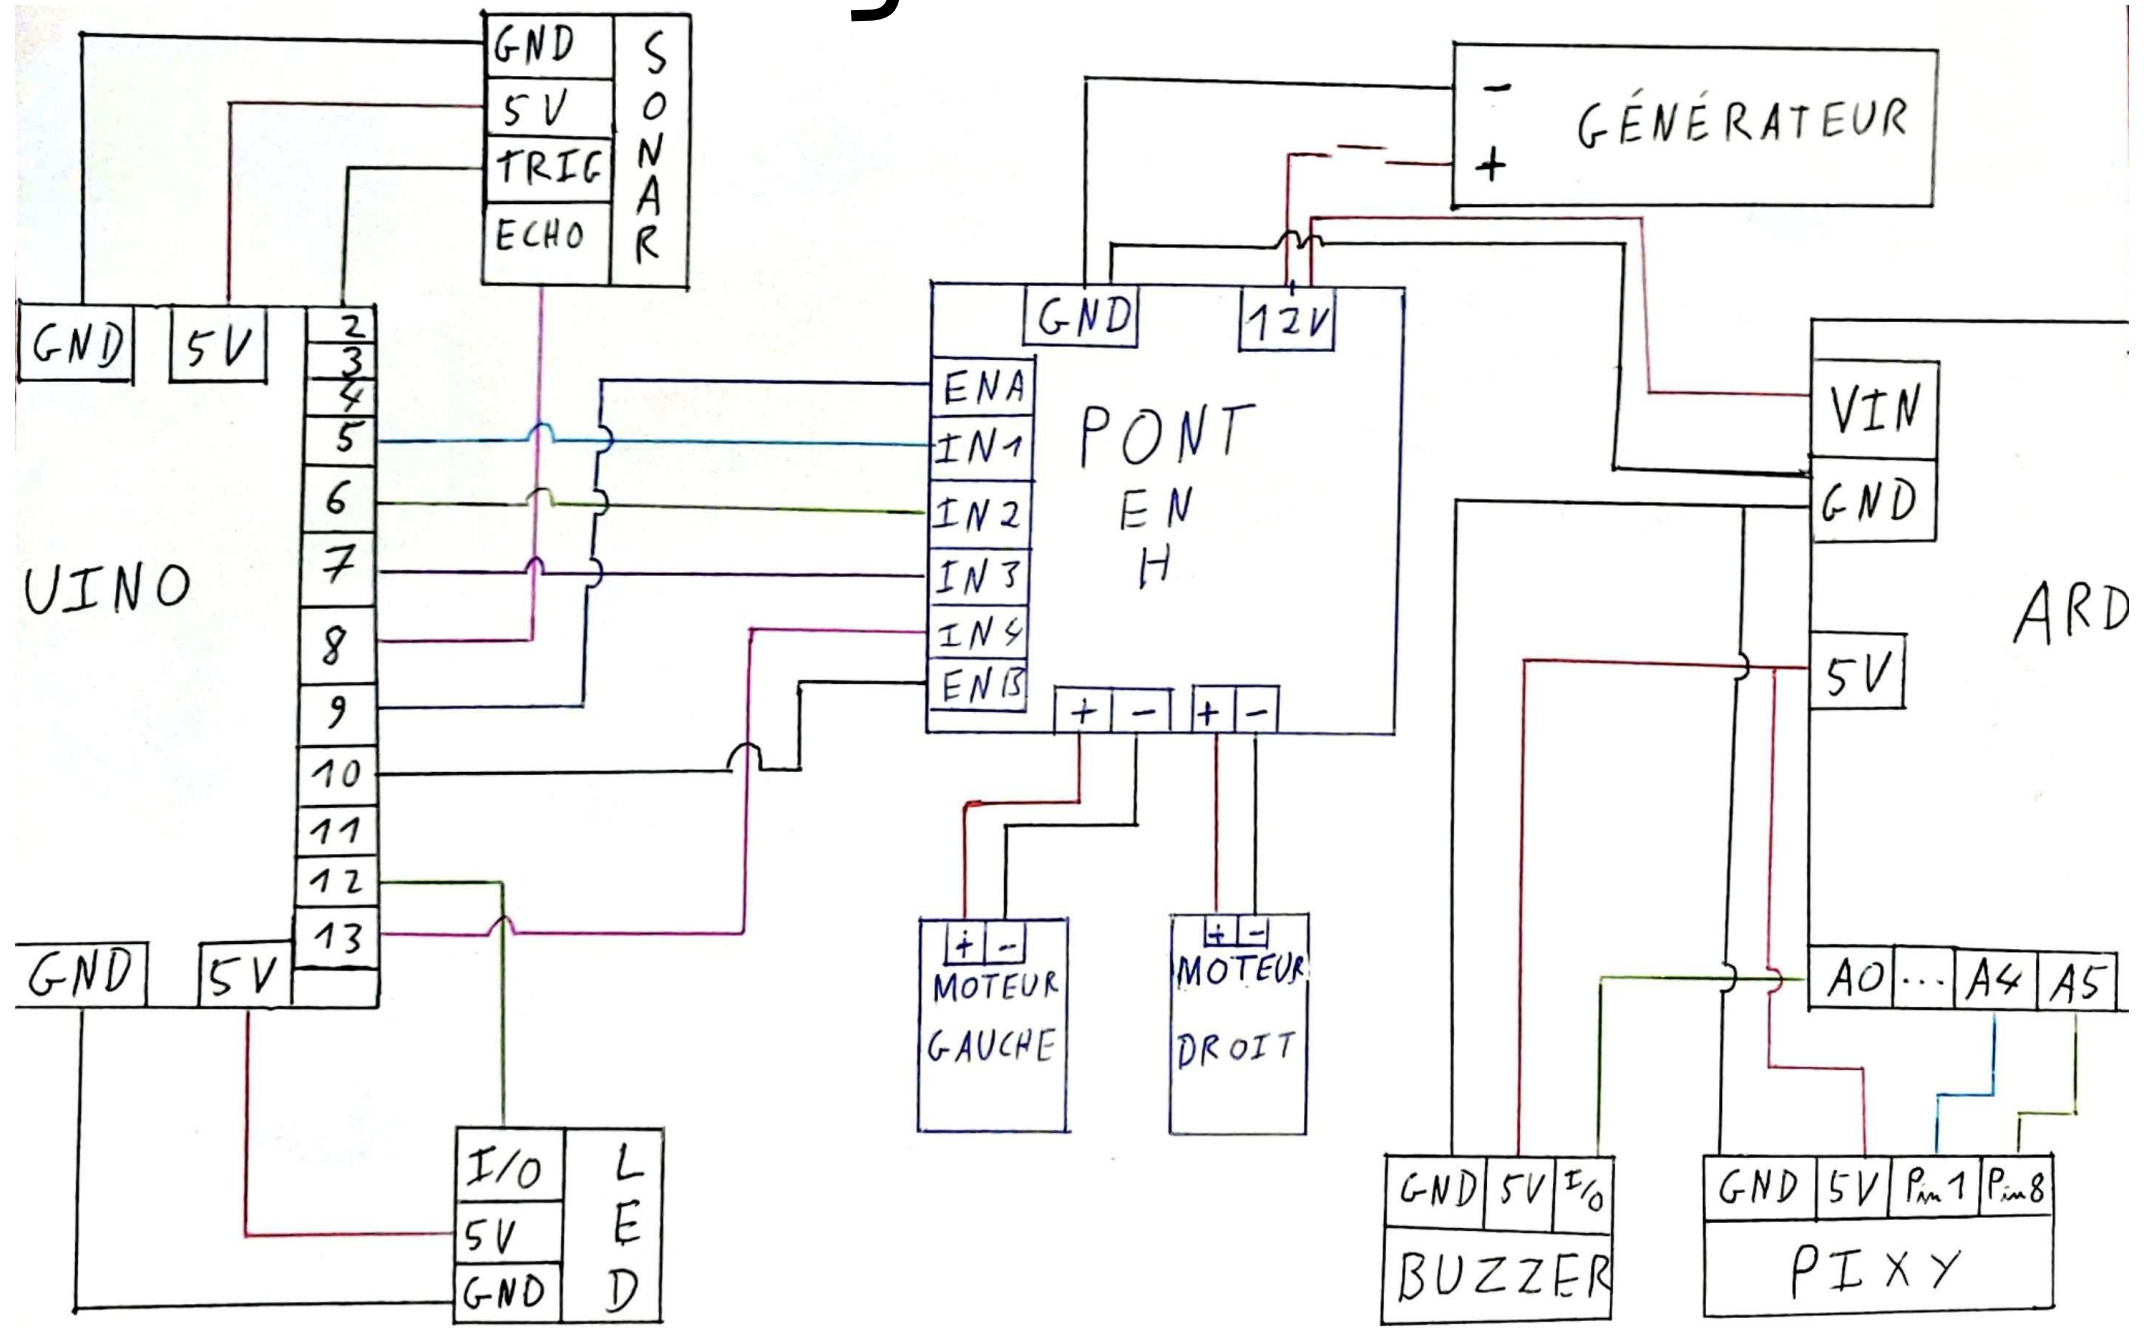 GND
5V
TRIG
ECHO
SONAR
-
+
GÉNÉRATEUR
GND
5V
2
3
4
5
6
7
8
9
10
11
12
13
UINO
GND
5V
GND
12V
ENA
IN1
IN2
IN3
IN4
ENB
PONT
EN
H
+ -
+ -
+ -
MOTEUR
GAUCHE
+ -
MOTEUR
DROIT
VIN
GND
5V
ARD
A0 ... A4 A5
I/O
5V
GND
LED
GND 5V I/O
BUZZER
GND 5V Pin1 Pin8
PIXY